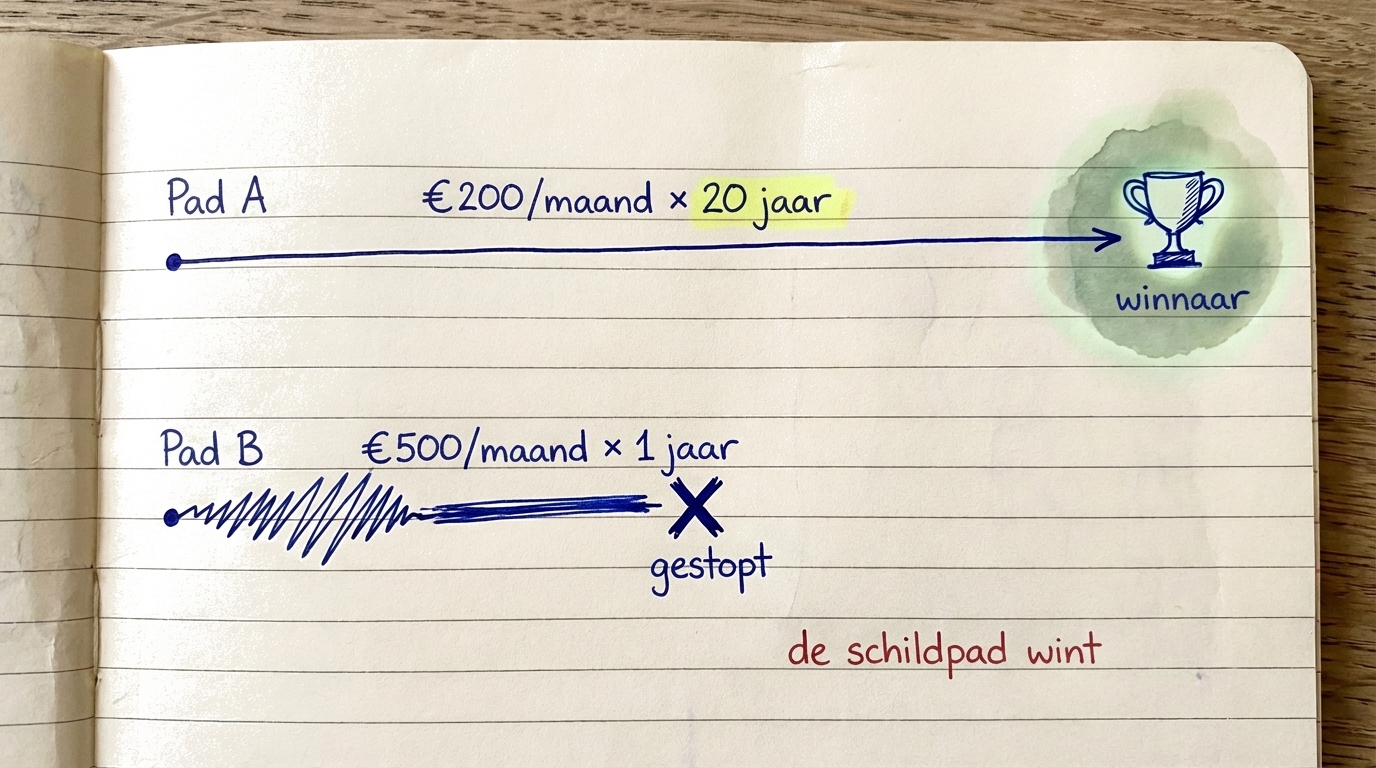 Pad A €200/maand × 20 jaar
winnaar
Pad B €500/maand × 1 jaar
gestopt
de schildpad wint